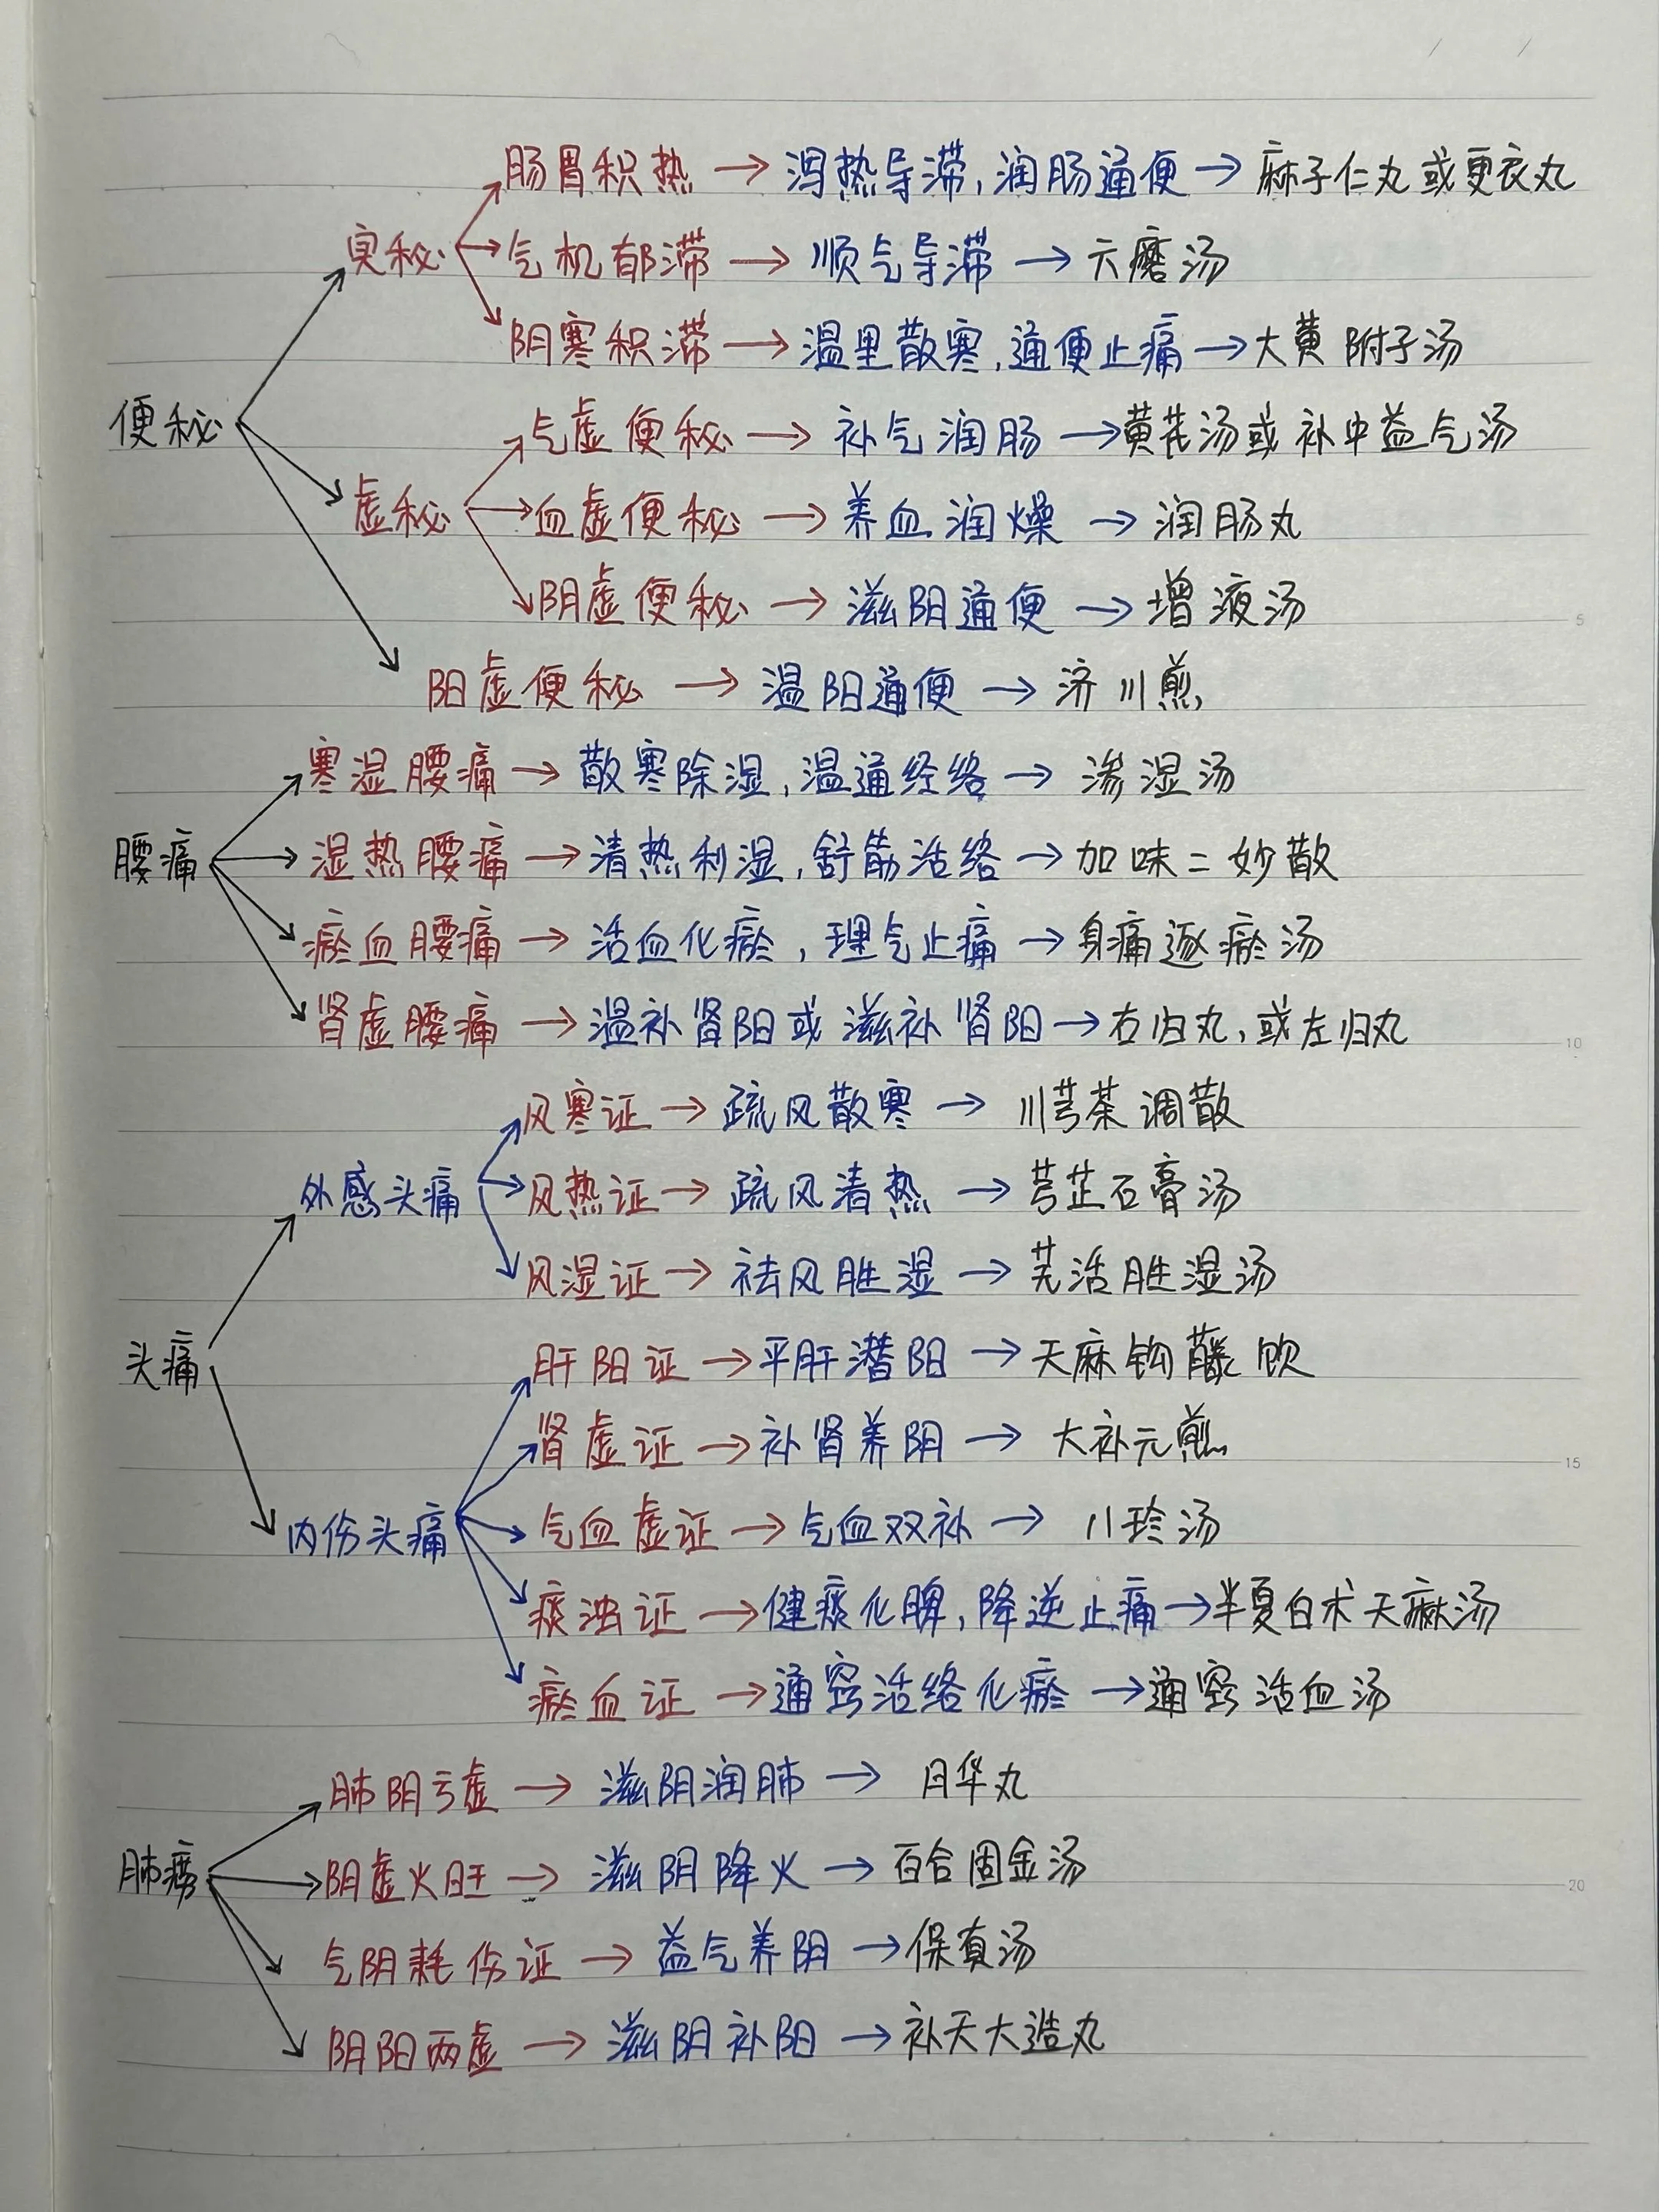 肠胃积热→泻热导滞,润肠通便→麻子仁丸或更衣丸
实秘
气机郁滞→顺气导滞→六磨汤
阴寒积滞→温里散寒,通便止痛→大黄附子汤
便秘
气虚便秘→补气润肠→黄芪汤或补中益气汤
虚秘
血虚便秘→养血润燥→润肠丸
阴虚便秘→滋阴通便→增液汤
阳虚便秘→温阳通便→济川煎
寒湿腰痛→散寒除湿,温通经络→渗湿汤
腰痛
湿热腰痛→清热利湿,舒筋活络→加味二妙散
瘀血腰痛→活血化瘀,理气止痛→身痛逐瘀汤
肾虚腰痛→温补肾阳或滋补肾阳→右归丸,或左归丸
风寒证→疏风散寒→川芎茶调散
外感头痛
风热证→疏风清热→芎芷石膏汤
风湿证→祛风胜湿→羌活胜湿汤
头痛
肝阳证→平肝潜阳→天麻钩藤饮
肾虚证→补肾养阴→大补元煎
内伤头痛
气血虚证→气血双补→八珍汤
痰浊证→健痰化脾,降逆止痛→半夏白术天麻汤
瘀血证→通窍活络化瘀→通窍活血汤
肺阴亏虚→滋阴润肺→月华丸
肺痨
阴虚火旺→滋阴降火→百合固金汤
气阴耗伤证→益气养阴→保真汤
阴阳两虚→滋阴补阳→补天大造丸
5
10
15
20